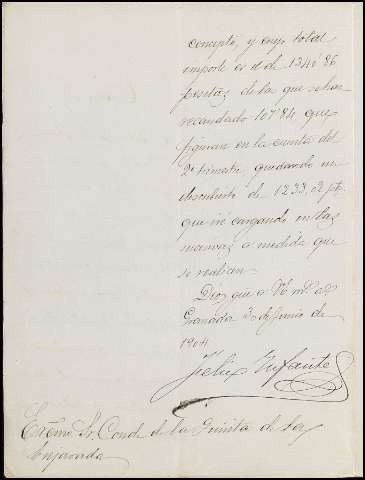 concepto, y cuyo total
importe es el de 1340'86
pesetas de la que se han
recaudado 107'84 que
figuran en la cuenta del
2º trimestre quedando en
descubierto de 1233,02 pts
que iré cargando en las
nuevas a medida que
se realicen
Dios gue a V. ms. as.
Granada 30 de Junio de
1904
Felix Infante
Excmo Sr. Conde de la Quinta de la
Enjarada